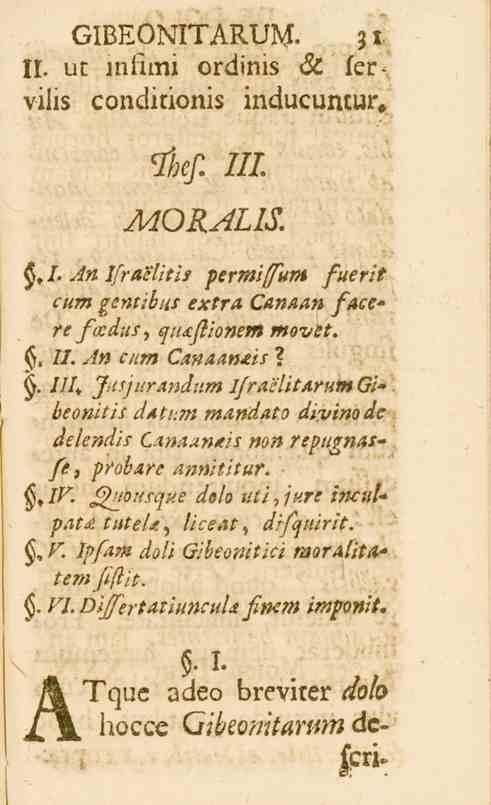 GIBEONITARUM. 31
II. ut infimi ordinis & ſer-
vilis conditionis inducuntur.
Theſ. III.
MORALIS.
§. I. An Iſraëlitis permiſſum fuerit
cum gentibus extra Canaan face-
re fœdus, quæſtionem movet.
§. II. An cum Canaanæis?
§. III. Jusjurandum Iſraëlitarum Gi-
beonitis datum mandato divino de
delendis Canaanæis non repugnas-
ſe, probare annititur.
§. IV. Quousque dolo uti, jure incul-
patæ tutelæ, liceat, diſquirit.
§. V. Ipſam doli Gibeonitici moralita-
tem ſiſtit.
§. VI. Diſſertatiunculæ finem imponit.
§. I.
ATque adeo breviter dolo
hocce Gibeonitarum de-
ſcri-